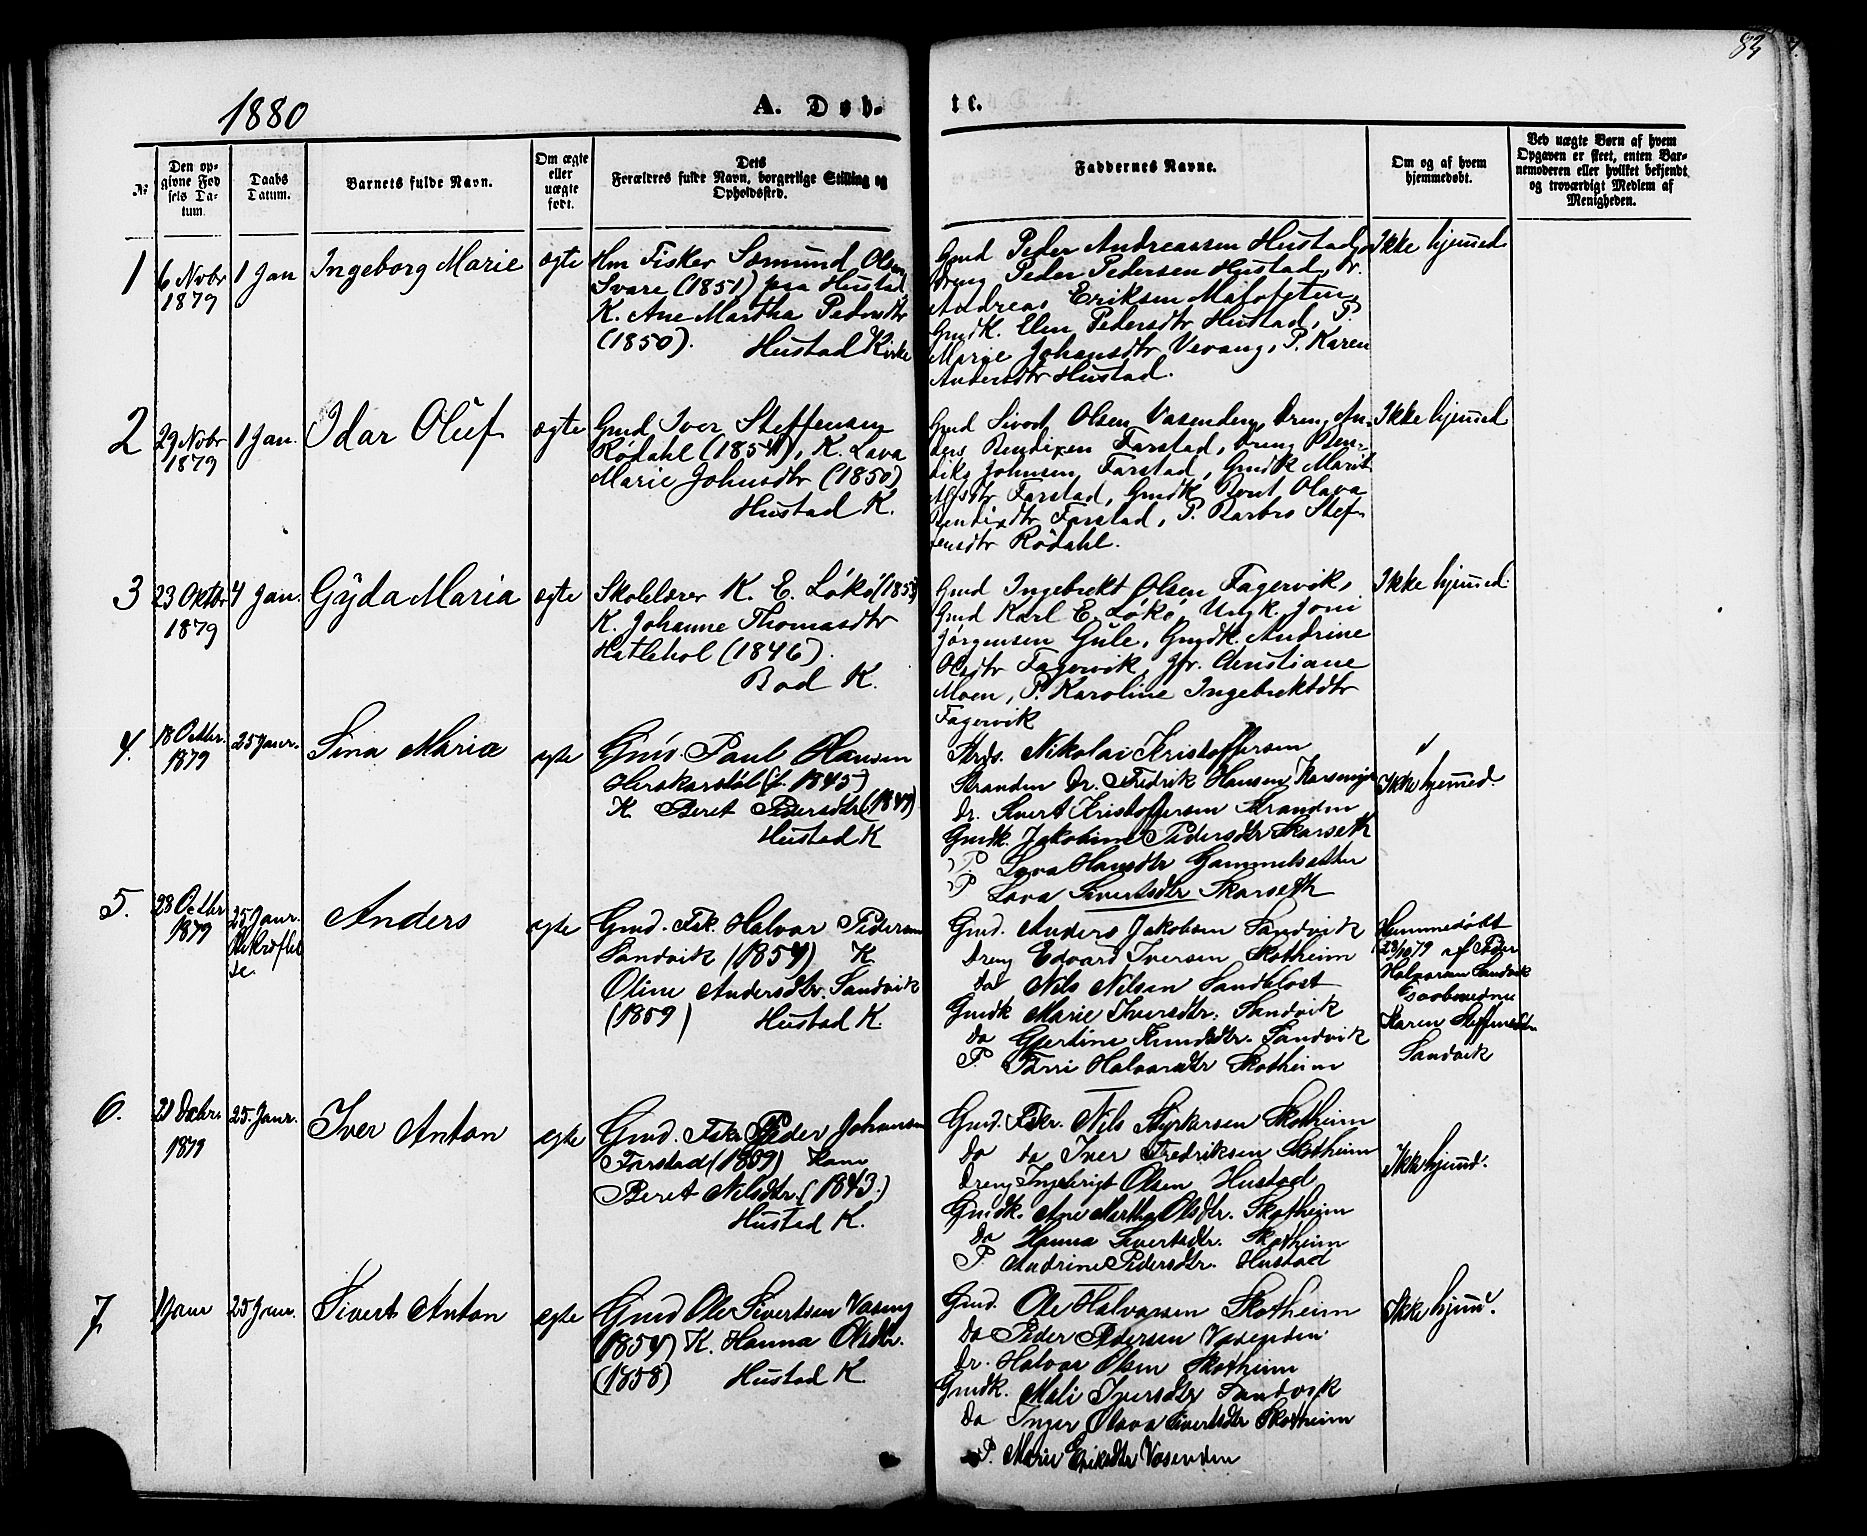 83
1880
A. Døbte.
№
Den opgivne Fødsels Datum.
Daabs Datum.
Barnets fulde Navn.
Om ægte eller uægte født.
Dets Forældres fulde Navn, borgerlige Stilling og Opholdssted.
Faddernes Navne.
Om og af hvem hjemmedøbt.
Ved uægte Børn af hvem Opgaven er skeet, enten Barnemoderen eller hvilket bekjendt og troværdigt Medlem af Menigheden.
1
6 Novbr 1879
1 Jan
Ingeborg Marie
ægte
Hm Fisker Sæmund Olsen
Svare (1851) paa Hustad
K. Ane Martha Pedersdtr
(1850). Hustad Kirke
Gmd Peder Andreassen Hustad,
Dreng Peder Pedersen Hustad, Dr.
Andreas Eriksen
Gmdk. Elen Pedersdtr Hustad, P.
Marie Johansdtr Vevang, P. Karen
Andersdtr Hustad.
Ikke hjemmed
2
29 Novbr 1879
1 Jan.
Idar Oluf
ægte
Gmd Iver Steffensen
Rødahl (1854), K. Lava
Marie Johnsdtr (1850)
Hustad K.
Gmd Sivert Olsen Vasenden, Dreng An-
ders Bendixen Farstad, Dreng Ben-
diks Johnsen Farstad, Gmdk Marit
Farstad, Gmdk Berit Olava
Bendixdtr Farstad, P. Barbro Stef-
fensdtr Rødahl.
Ikke hjemmed
3
23 Oktbr 1879
4 Jan.
Gyda Maria
ægte
Skolelærer K. E. Løkø (1853)
K. Johanne Thomasdtr
Hatlehol (1846).
Bod K.
Gmd Ingebrekt Olsen Fagervik,
Gmd Karl E. Løkø, Ungk. Joni
Jørgensen Gule, Gmdk. Andrine
Olsdtr Fagervik, Jfr. Christiane
Moen, P. Karoline Ingebrektdtr
Fagervik
Ikke hjemmed.
4.
18 Octbr. 1879
25 Janr.
Sina Maria
ægte
Gmd. Paul Hansen
Herskarstøl (f. 1845)
K Beret Pedersdtr (1849)
Hustad K
Strds. Nikolai Kristoffersen
Stranden Dr. Fredrik Hansen
Dr. Sivert Kristoffersen Stranden
Gmdk. Jakobine Pedersdtr Skarseth
P. Lava Hansdtr Gammelsætter
P Lava Sivertsdtr Skarseth
Ikke hjemmed.
5.
28 Octbr 1879
25 Janr. Bekræftelse
Anders
ægte
Gmd. Fsk. Halvar Pedersen
Sandvik (1854) K
Oline Andersdtr. Sandvik
(1859) Hustad K.
Gmd. Anders Jakobsen Sandvik
Dreng Edvard Iversen Skotheim
do Nils Nilsen Sandblost
Gmdk Marie Iversdtr. Sandvik
do Gjertine Knudsdtr. Sandvik
P. Halvarsdtr Skotheim
Hjemmedøbt
28/10 79 af Peder
Halvarsen Sandvik
Karen Steffensdtr
Sandvik
6.
21 Decbr. 1879
25 Janr.
Iver Anton
ægte
Gmd. Fskr Peder Johansen
Farstad (1859) Kone
Beret Nilsdtr. (1843.)
Hustad K.
Gmd. Fskr. Nils Styrkarsen Skotheim
do do Iver Fredriksen Skotheim
Dreng Ingebrigt Olsen Hustad
Gmdk. Ane Martha Olsdtr. Skotheim
do Hanna Sivertsdtr. Skotheim
P. Andrine Pedersdtr. Hustad
Ikke hjemmd.
7.
1 Janr
25 Janr.
Sivert Anton
ægte
Gmd Ole Sivertsen Vaseng
(1854) K. Hanna Olsdtr.
(1858) Hustad K.
Gmd. Ole Halvarsen Skotheim
do Peder Pedersen Vasenden
Dr. Halvar Olsen Skotheim
Gmdk. Mali Iversdtr Sandvik
do Inger Olava Sivertsdtr Skotheim
P. Marie Eriksdtr Vasenden
Ikke hjemd.